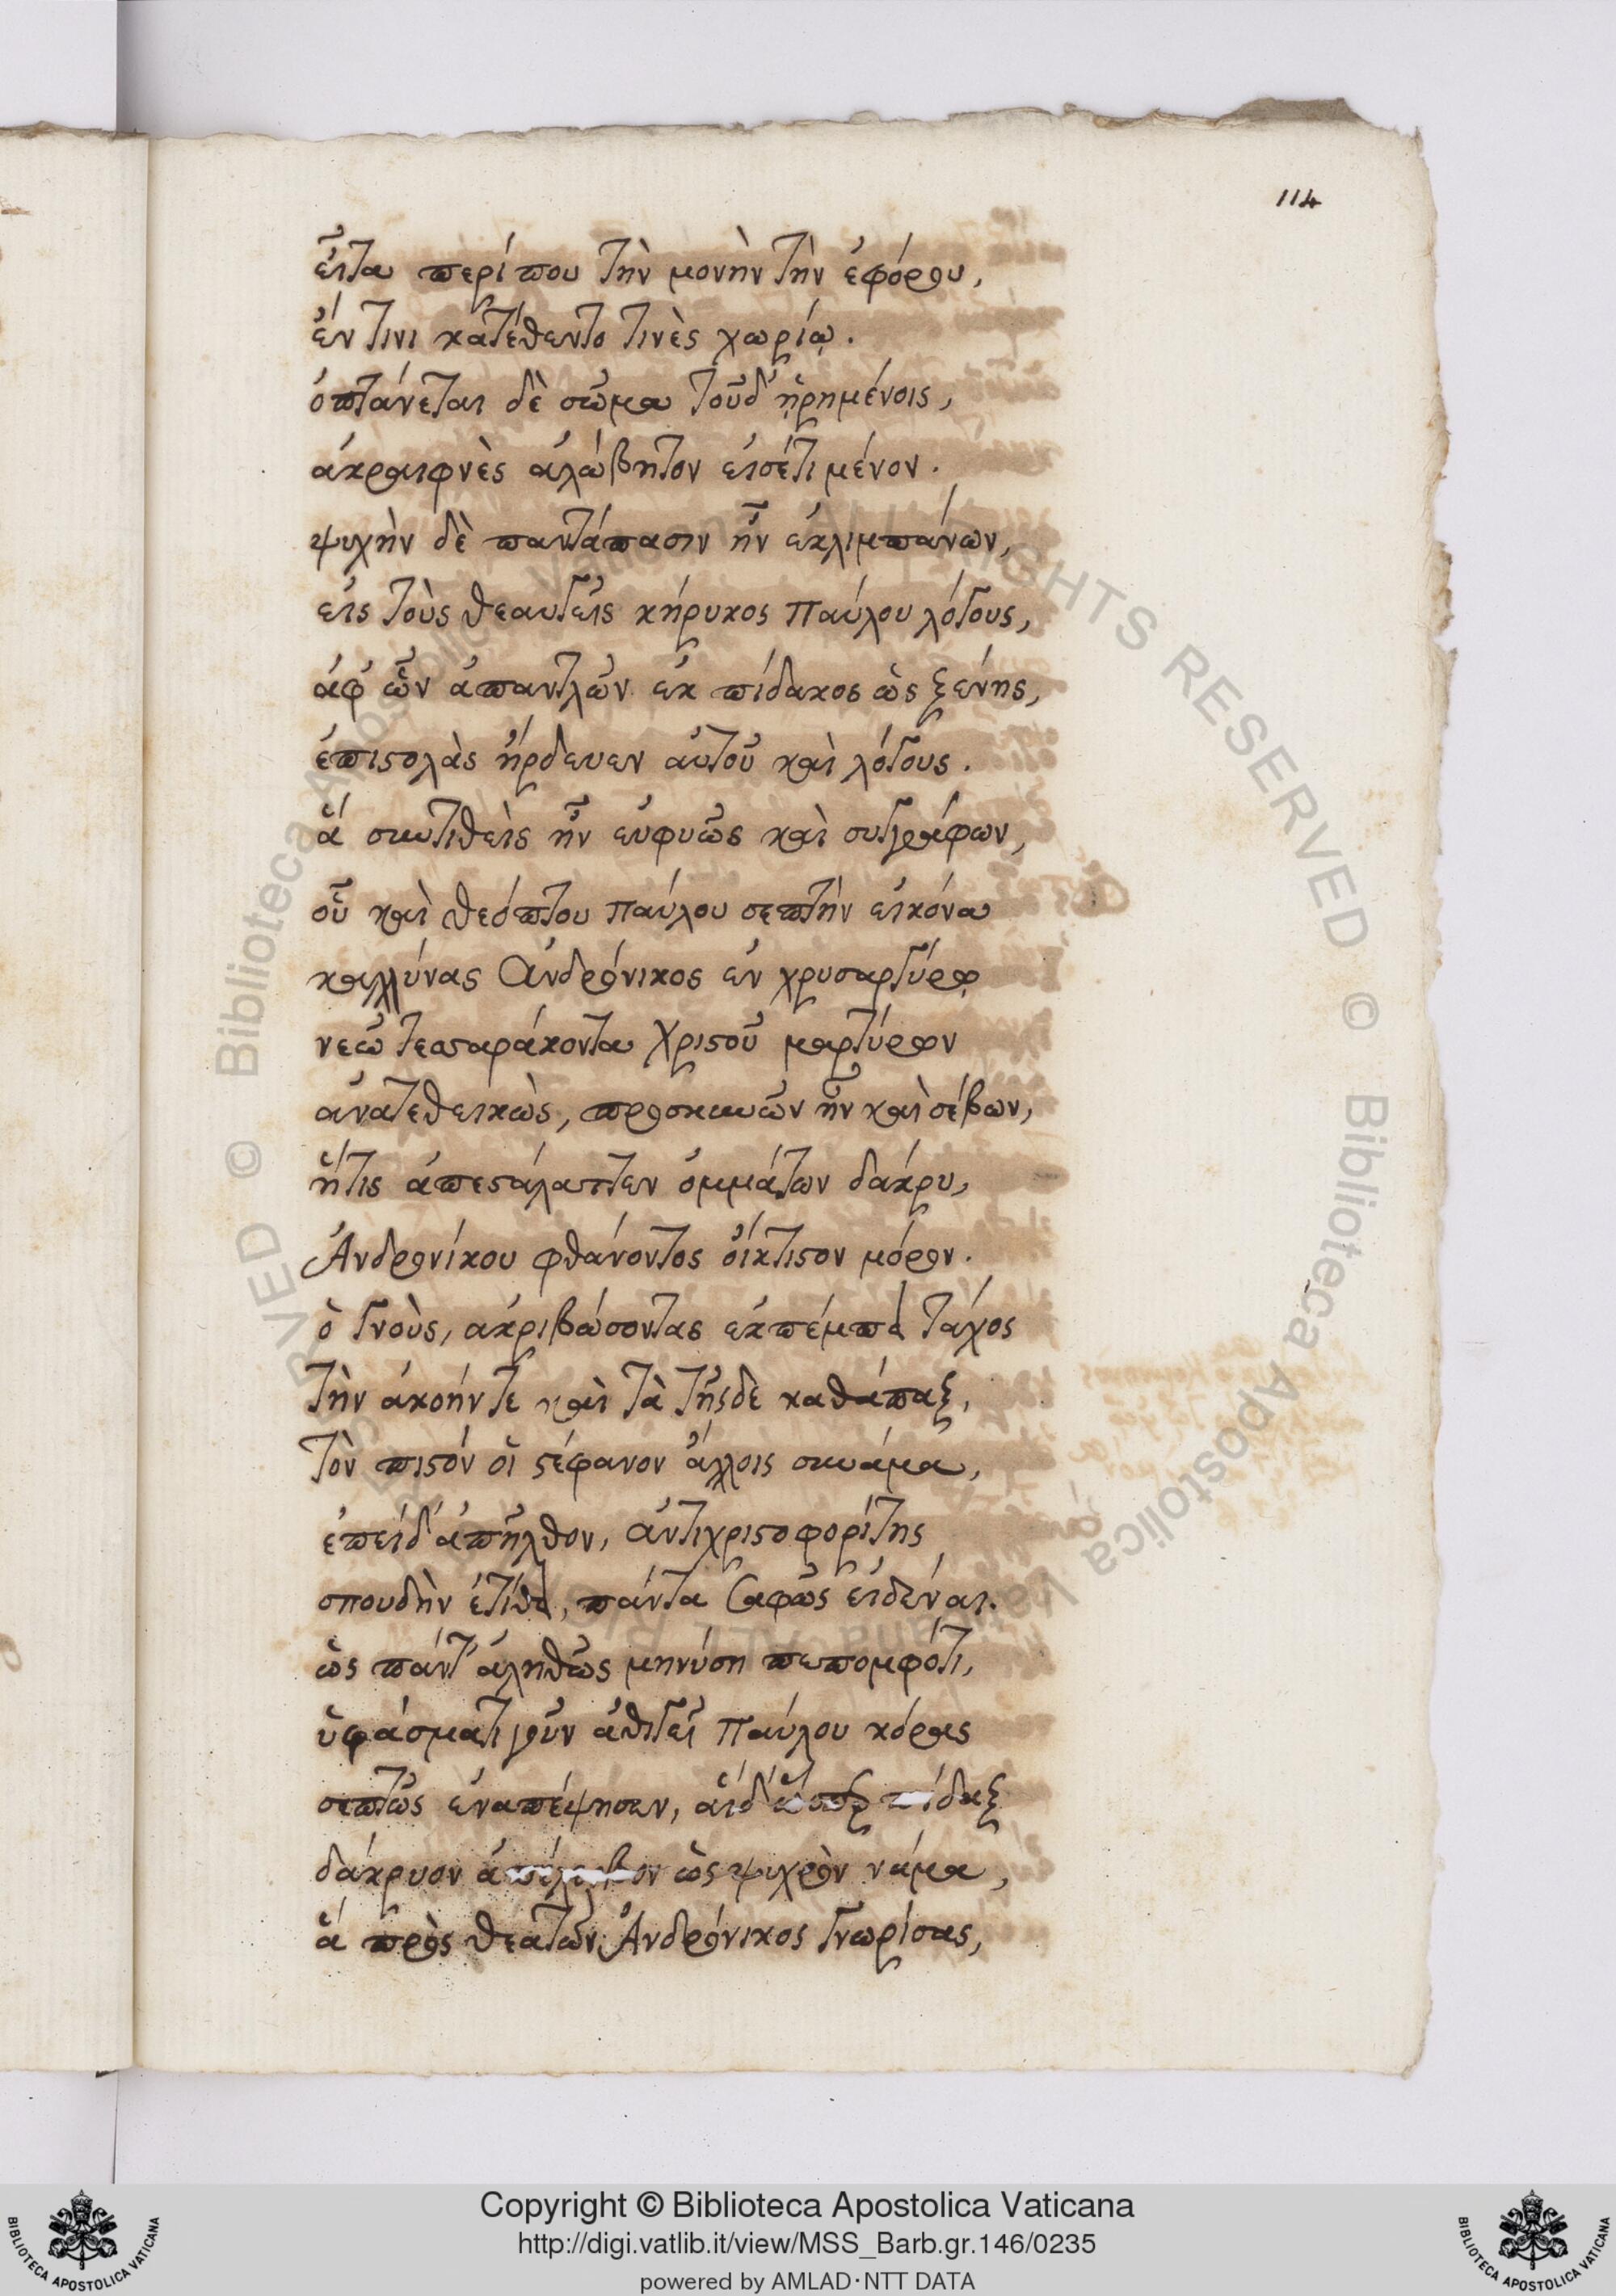 114
εἶτα περίπου τὴν μονὴν τὴν ἐφόρου,
ἔν τινι κατέθεντο τινὲς χωρίῳ.
ὀπτάνεται δὲ σῶμα τοῦδ' ᾑρημένοις,
ἀκραιφνὲς ἀλώβητον εἰσέτι μένον.
ψυχὴν δὲ παντάπασιν ἦν ἐκλιμπάνων,
εἰς τοὺς θεαυγεῖς κήρυκος Παύλου λόγους,
ἀφ' ὧν ἀπαντλῶν ἐκ πίδακος ὡς ξένης,
ἐπιστολὰς ἤρδευεν αὐτοῦ καὶ λόγους.
ἃ συντιθεὶς ἦν εὐφυῶς καὶ συγγράφων,
οὗ καὶ θεόπτου Παύλου σεπτὴν εἰκόνα
καλλύνας Ἀνδρόνικος ἐν χρυσαργύρῳ
νεῲ τεσσαράκοντα Χριστοῦ μαρτύρων
ἀνατεθεικὼς, προσκυνῶν ἦν καὶ σέβων,
ἥτις ἀπεστάλαττεν ὀμμάτων δάκρυ,
Ἀνδρονίκου φθάνοντος οἴκτιστον μόρον.
ὁ γνοὺς, ἀκριβώσοντας ἐκπέμπει τάχος
τὴν ἀκοήν τε καὶ τὰ τῆσδε καθάπαξ,
τὸν πιστόν οἱ στέφανον ἄλλοις συνάμα,
ἐπεὶ δ' ἀπῆλθον, ἀντιχριστοφορίτης
σπουδὴν ἐτίθει, πάντα σαφῶς εἰδέναι.
ὡς πάντ' ἀληθῶς μηνύσῃ πεπομφότι,
ὑφάσματι γοῦν ἀθιγεῖ Παύλου κόρας
σεπτῶς ἐναπέψησεν, αἵδ' ὥσπερ πίδαξ
δάκρυον ἀπέλειβον ὡς ψυχρὸν νάμα,
ἃ πρὸς θεατῶν Ἀνδρόνικος γνωρίσας,
Copyright © Biblioteca Apostolica Vaticana
http://digi.vatlib.it/view/MSS_Barb.gr.146/0235
powered by AMLAD·NTT DATA
BIBLIOTECA APOSTOLICA VATICANA
BIBLIOTECA APOSTOLICA VATICANA